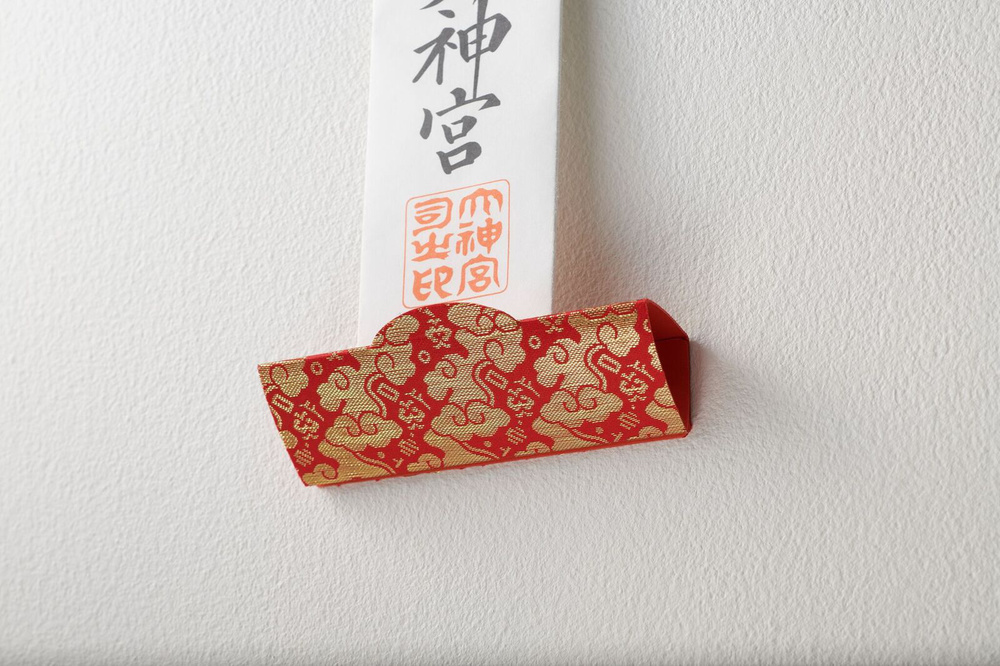 神宮
大神宮
司之印